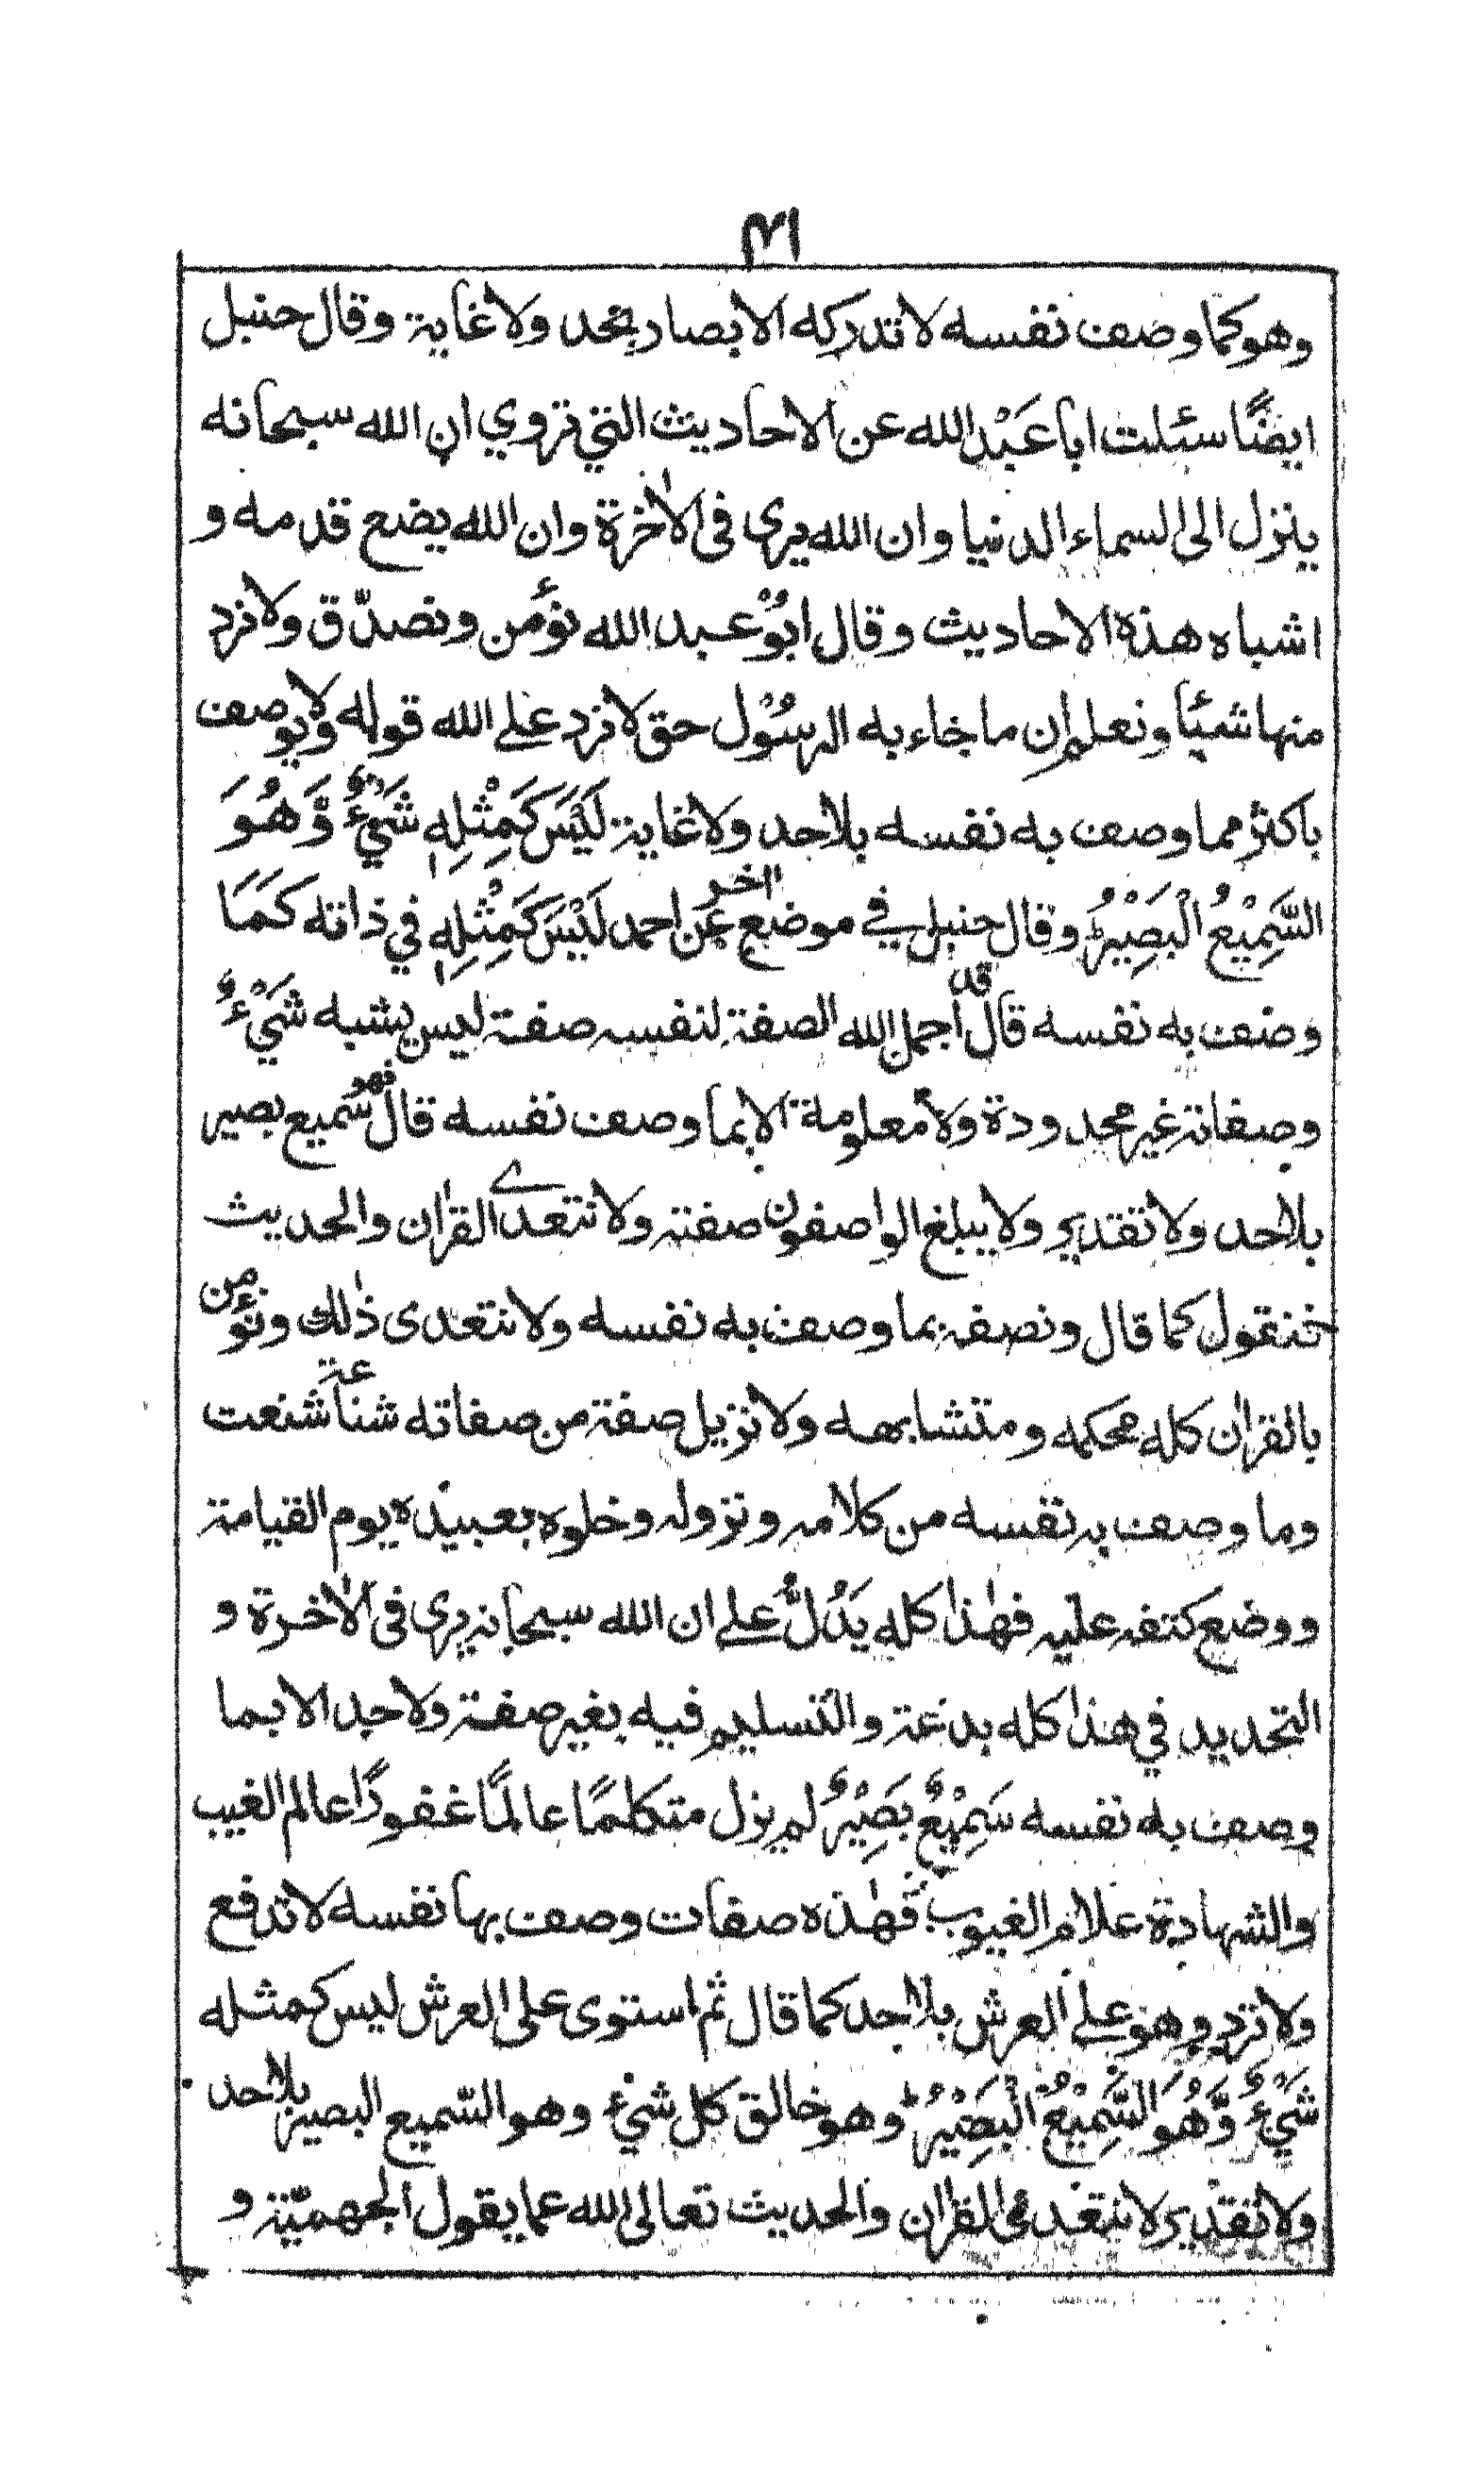 ۴۱
وهو كما وصف نفسه لا تدركه الابصار بحد ولا غاية وقال حنبل
ايضًا سئلت ابا عَبْد الله عن الاحاديث التي تروي ان الله سبحانه
ينزل الى السماء الدنيا وان الله يرى فى الاٰخرة وان الله يضع قدمه و
اشباه هذه الاحاديث وقال ابُوْ عبد الله نؤمن ونصدّق ولا نرد
منها شيئا ونعلم ان ما جاء به الرسُوْل حق لا نرد على الله قوله ولا يوصف
باكثر مما وصف به نفسه بلا حد ولا غاية لَيْسَ كَمِثْلِهٖ شَيْءٌ وَّهُوَ
السَّمِيْعُ الْبَصِيْرُ وقال حنبل في موضع اخر عن احمد لَيْسَ كَمِثْلِهٖ في ذاته كَمَا
وصف به نفسه قال قد اجمل الله الصفة لنفسه صفة ليس يشبه شَيْءٌ
وصفاته غير محدودة ولا معلومة الا بما وصف نفسه قال فهو سميع بصير
بلا حد ولا تقدير ولا يبلغ الواصفون صفته ولا نتعدے القراٰن والحديث
فنقول كما قال ونصفه بما وصف به نفسه ولا نتعدى ذٰلك ونؤمن
بالقراٰن كله محكمه ومتشابهه ولا نزيل صفة من صفاته شناعة شنعت
وما وصف به نفسه من كلامه ونزوله وخلوه بعبيده يوم القيامة
ووضع كتفه عليه فهٰذا كله يَدُلُّ على ان الله سبحانه يرى فى الاٰخرة و
التحديد في هذا كله بدعة والتسليم فيه بغير صفة ولا حد الا بما
وصف به نفسه سَمِيْعٌ بَصِيْرٌ لم يزل متكلمًا عالمًا غفورًا عالم الغيب
والشهادة علام الغيوب فهٰذه صفات وصف بها نفسه لا تدفع
ولا ترد وهو على العرش بلا حد كما قال ثم استوى على العرش ليس كمثله
شَيْءٌ وَّهُوَ السَّمِيْعُ الْبَصِيْرُ وهو خالق كل شيْء وهو السّميع البصير بلا حد
ولا تقدير لا نتعدى القراٰن والحديث تعالى الله عما يقول الجهميّة و